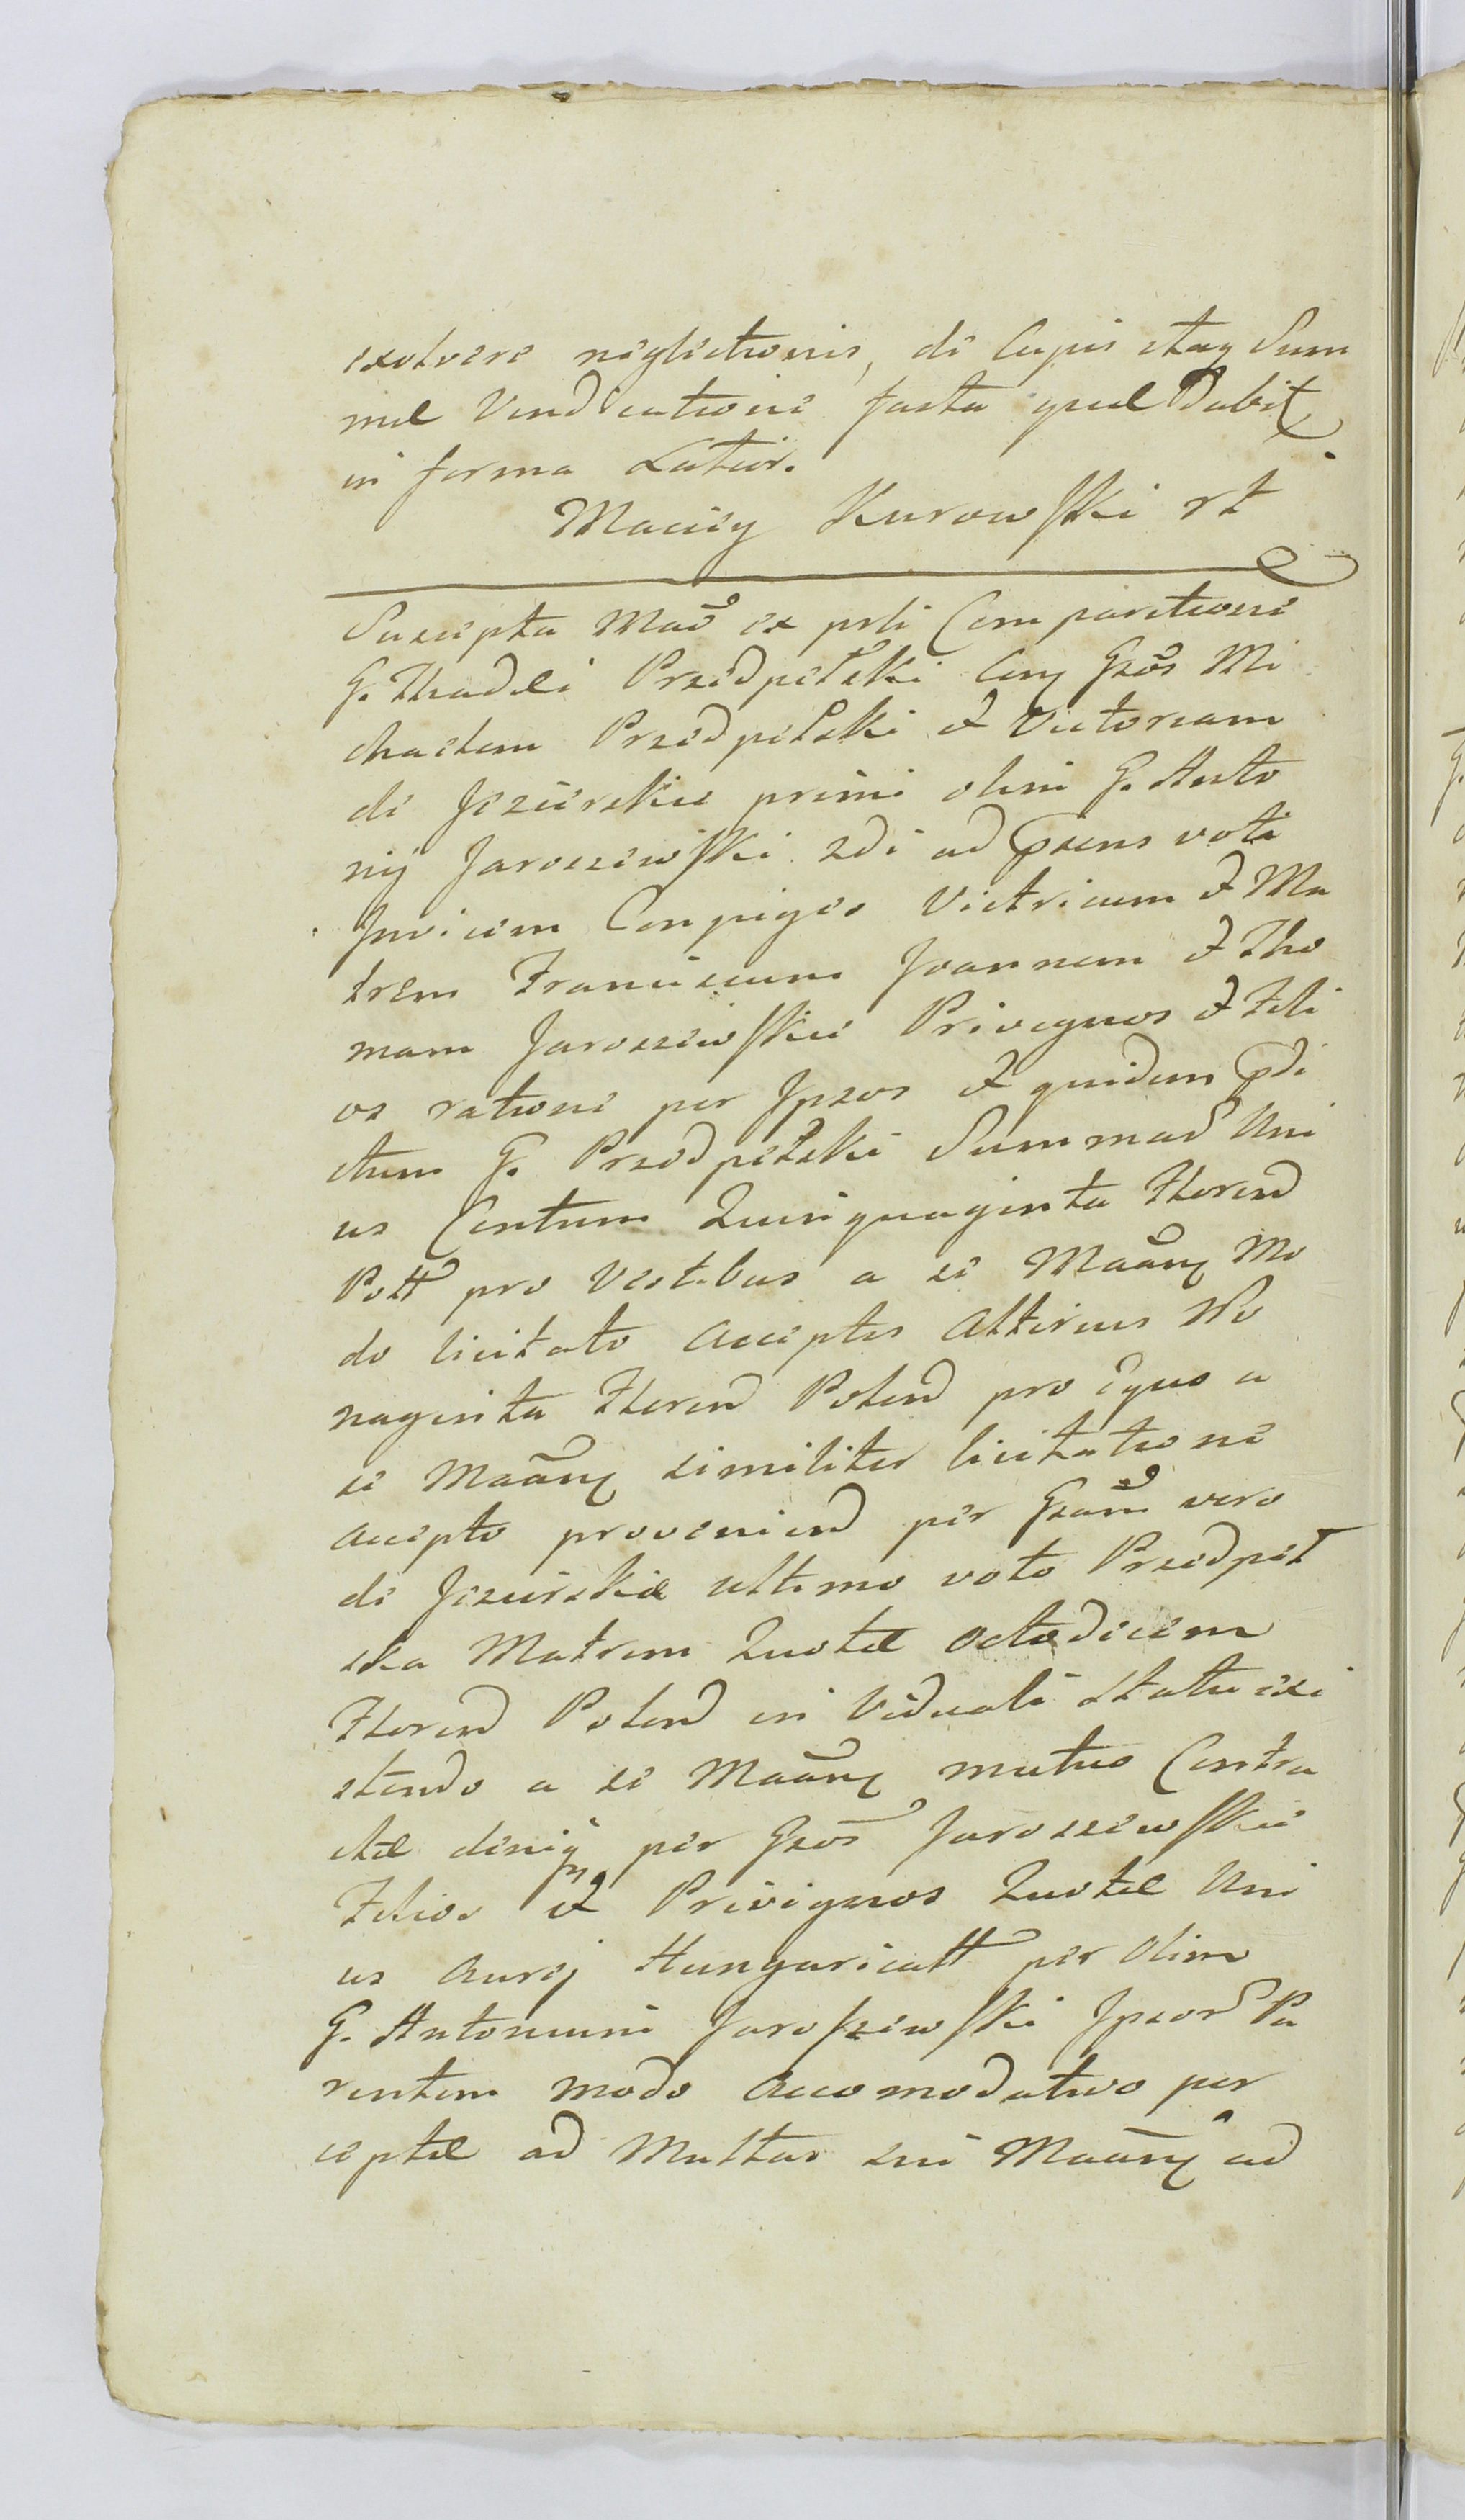 exolvere neglectionis, de Cujus itaq Sum
mæ Vindicatione facta quæ Dabit
in forma Latior.
Maciey Kurowski rt
Suscepta Mað ex prli Comparitione
G. Thadæi Przedpełski Cong Gsos Mi
chaelem Przedpełski et Victoriam
de Jezierskie primi olim G. Anto
nij Jaroszewski 2di ad psens voti
Invicem Conjuges Victricum et Ma
trem Franciscum Joannem et Tho
mam Jaroszewskie Privignos et Fili
os ratione per Ipsos et quidem pdi
ctum G. Przedpełski Summað Uni
us Centum Quinquaginta Floren
Poll pro Vestibus a se Maanq Mo
do licitato acceptis Alterius No
naginta Floren Polon pro Equo a
se Maanq similiter licitatione
accepto provenien per Gsam vero
de Jezierskie ultimo voto Przedpeł
ska Matrem Quotæ octodecem
Floren Polon in Viduali statu exi
stendo a se Maanq mutuo Contra
ctæ deniq per Gsos Jaroszewskie
Filios et Privignos Quotæ Uni
us Aurej Hungaricall per olim
G. Antonium Jaroszewski Ipsor Pa
rentem modo Accomodativo per
ceptæ ad Multas sui Maanq ad